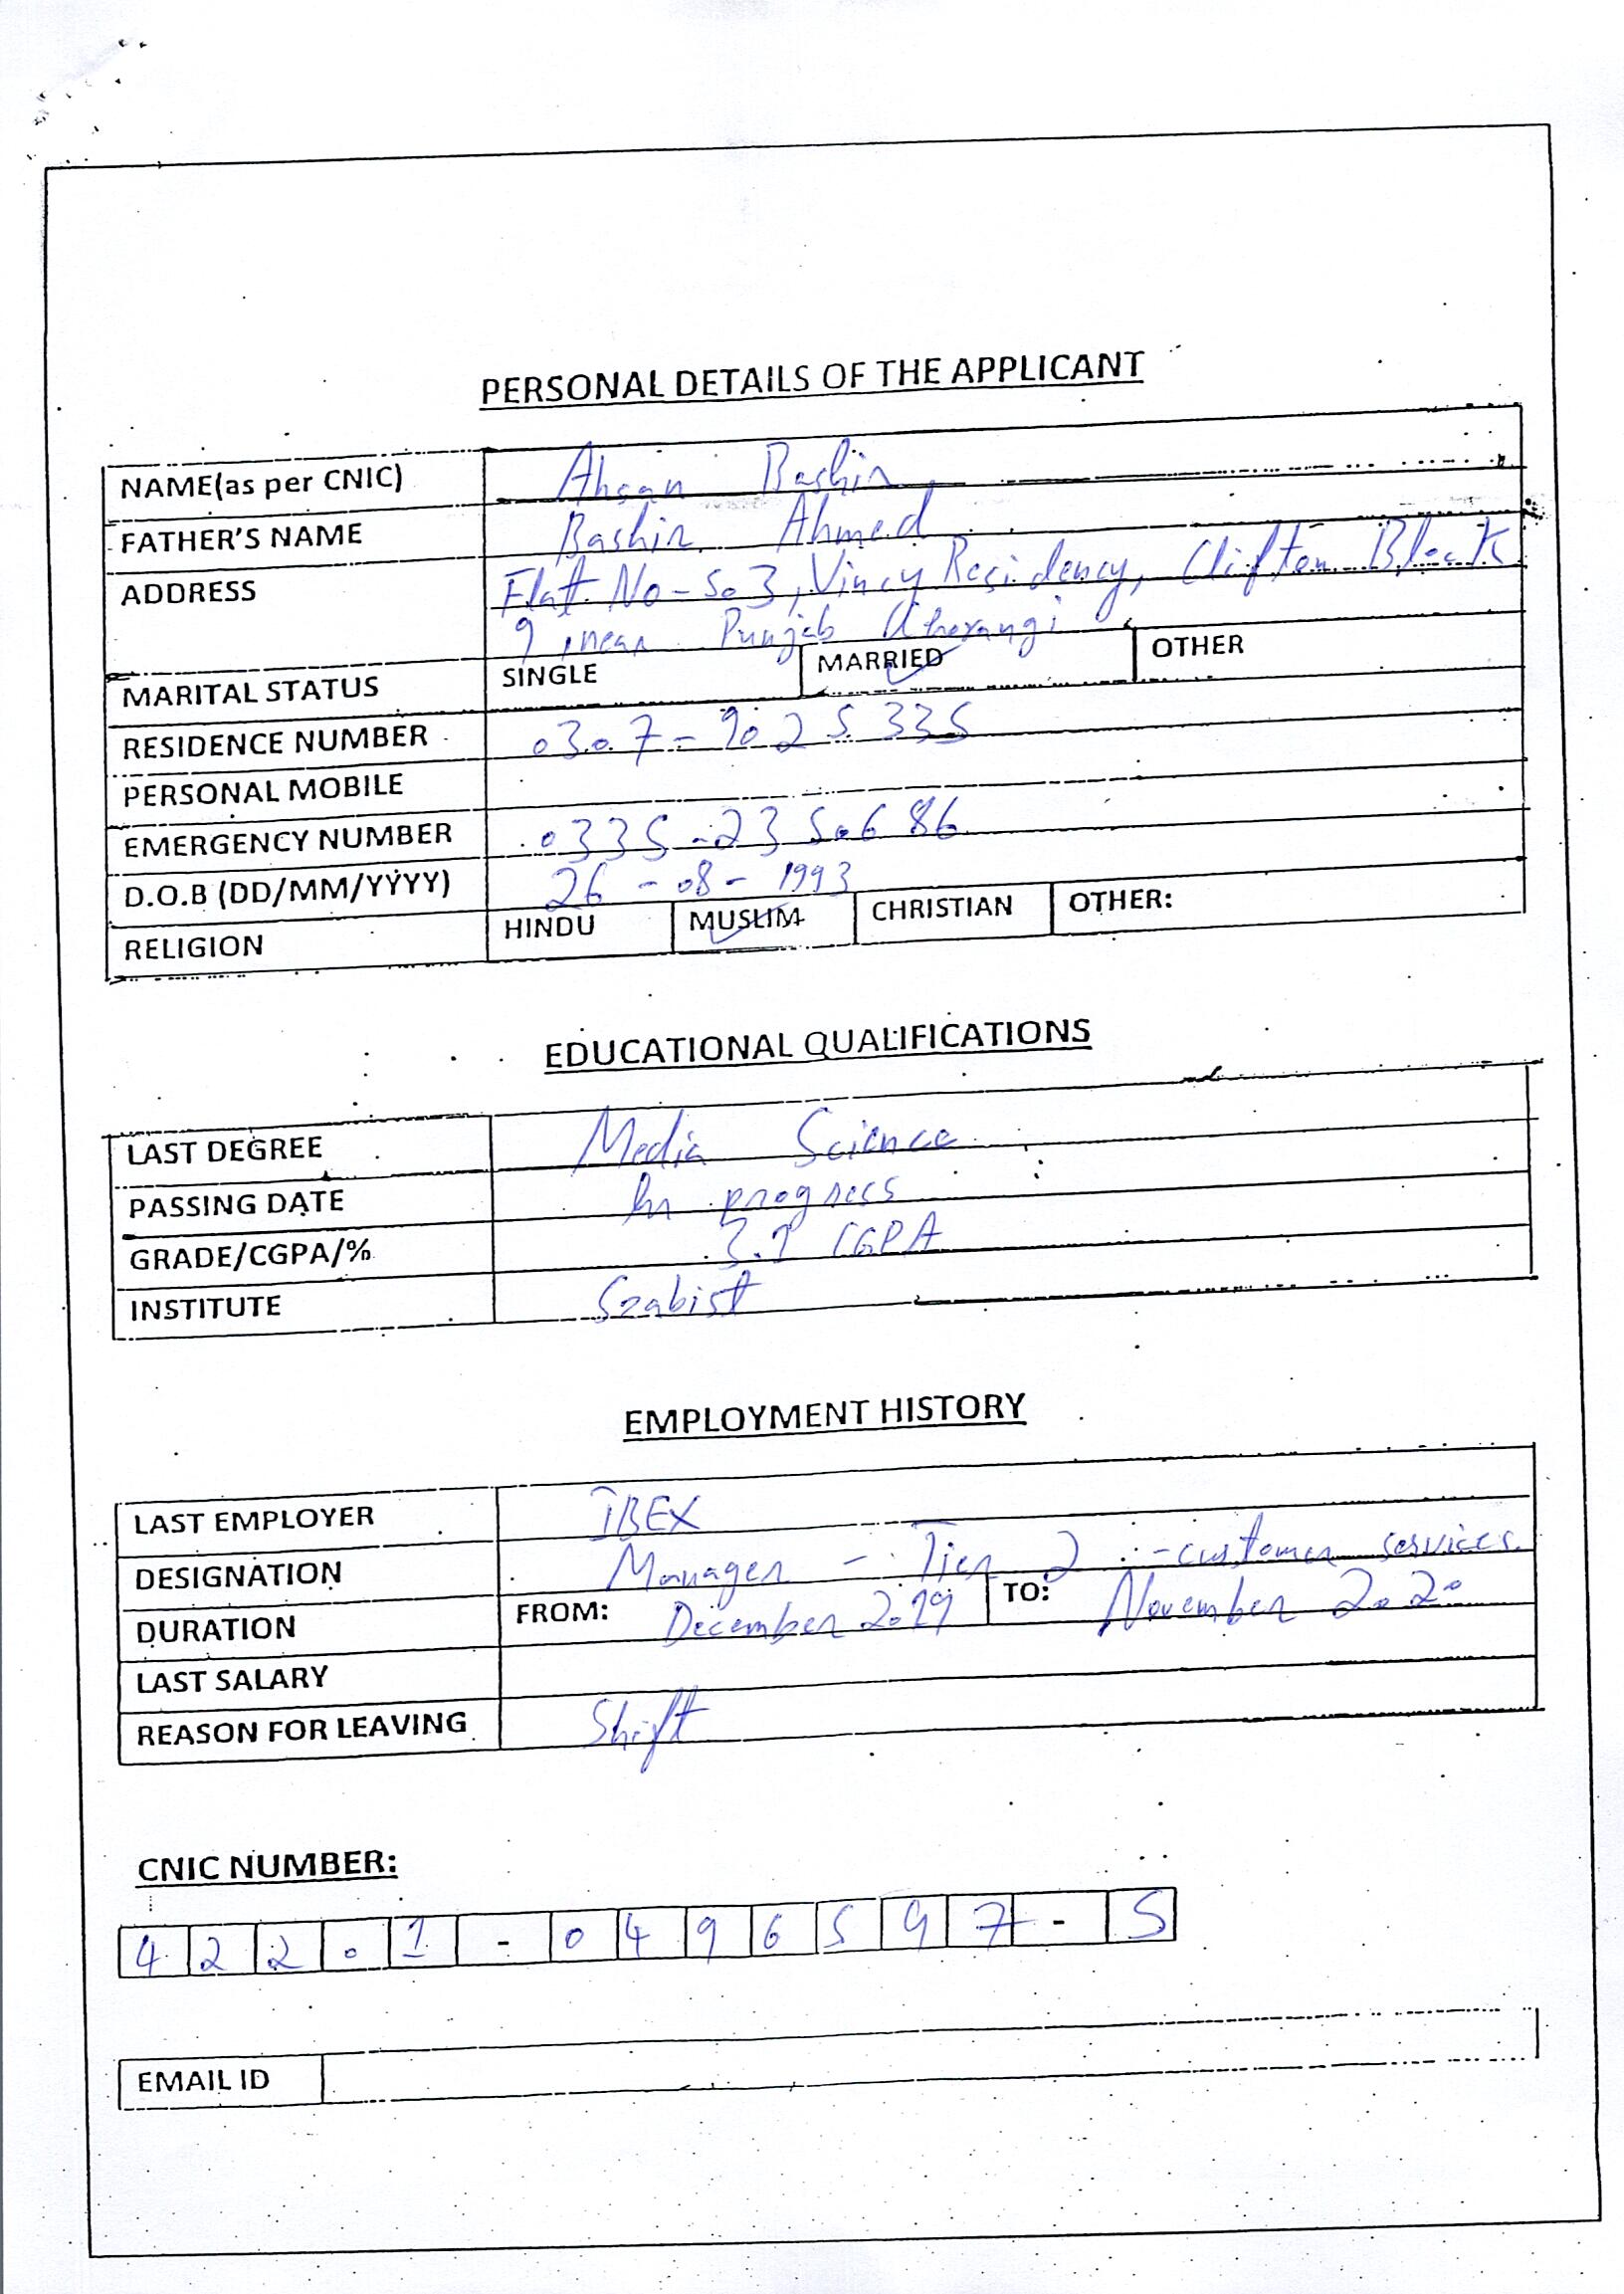 PERSONAL DETAILS OF THE APPLICANT
NAME(as per CNIC) Ahsan Bashir
FATHER'S NAME Bashir Ahmed
ADDRESS Flat No-503, Vincy Residency, Clifton Block
9, near Punjab Chorangi
MARITAL STATUS SINGLE MARRIED OTHER
RESIDENCE NUMBER 0307-9025335
PERSONAL MOBILE
EMERGENCY NUMBER 0335-2350686
D.O.B (DD/MM/YYYY) 26-08-1993
RELIGION HINDU MUSLIM CHRISTIAN OTHER:
EDUCATIONAL QUALIFICATIONS
LAST DEGREE Media Science
PASSING DATE In progress
GRADE/CGPA/% CGPA
INSTITUTE Szabist
EMPLOYMENT HISTORY
LAST EMPLOYER IBEX
DESIGNATION Manager - Tier 2 - customer services
DURATION FROM: December 2019 TO: November 2020
LAST SALARY
REASON FOR LEAVING Shift
CNIC NUMBER:
42201-0496597-5
EMAIL ID